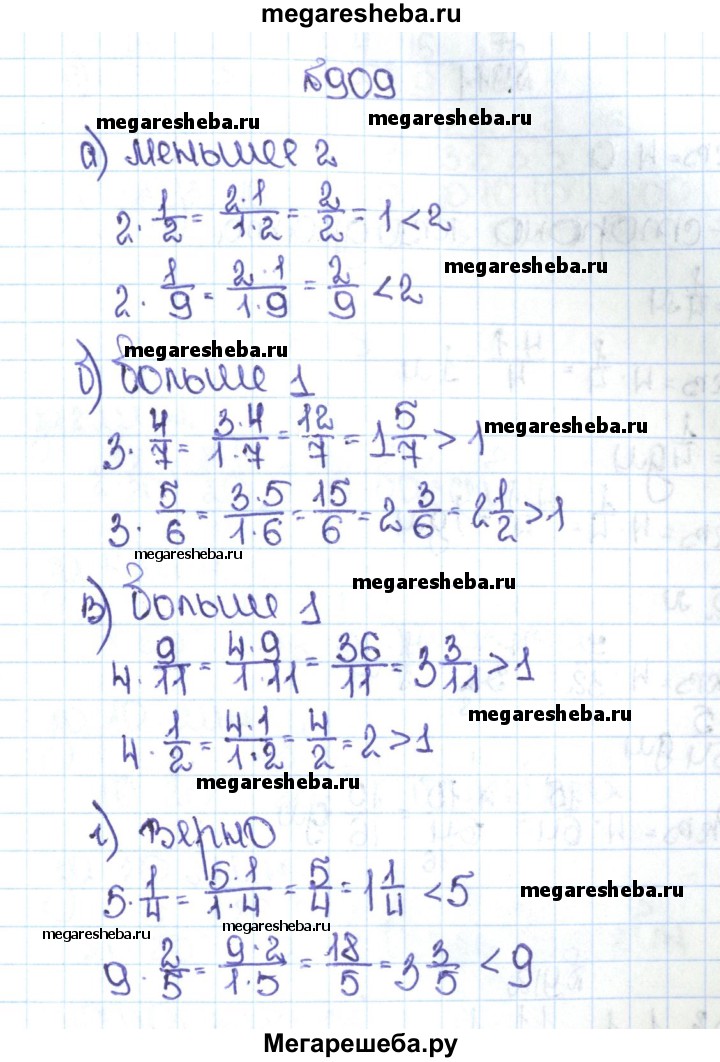 megaresheba.ru
№909
megaresheba.ru
megaresheba.ru
а) меньшее 2
2 · 1/2 = 2·1/1·2 = 2/2 = 1 < 2
megaresheba.ru
2 · 1/9 = 2·1/1·9 = 2/9 < 2
megaresheba.ru
б) больше 1
3 · 4/7 = 3·4/1·7 = 12/7 = 1 5/7 > 1
megaresheba.ru
3 · 5/6 = 3·5/1·6 = 15/6 = 2 3/6 = 2 1/2 > 1
megaresheba.ru
megaresheba.ru
в) больше 1
4 · 9/11 = 4·9/1·11 = 36/11 = 3 3/11 > 1
megaresheba.ru
4 · 1/2 = 4·1/1·2 = 4/2 = 2 > 1
megaresheba.ru
г) верно
5 · 1/4 = 5·1/1·4 = 5/4 = 1 1/4 < 5
megaresheba.ru
megaresheba.ru
megaresheba.ru
9 · 2/5 = 9·2/1·5 = 18/5 = 3 3/5 < 9
Мегарешеба.ру